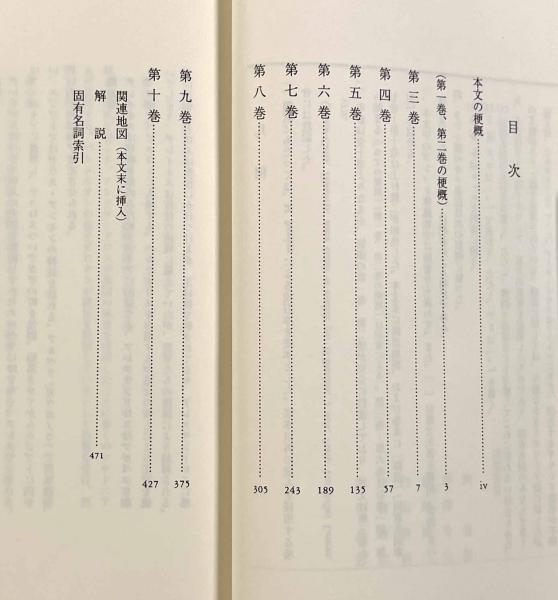 目次
本文の梗概……iv
（第一巻、第二巻の梗概）……3
第三巻……7
第四巻……57
第五巻……135
第六巻……189
第七巻……243
第八巻……305
第九巻……375
第十巻……427
関連地図（本文末に挿入）
解説……471
固有名詞索引